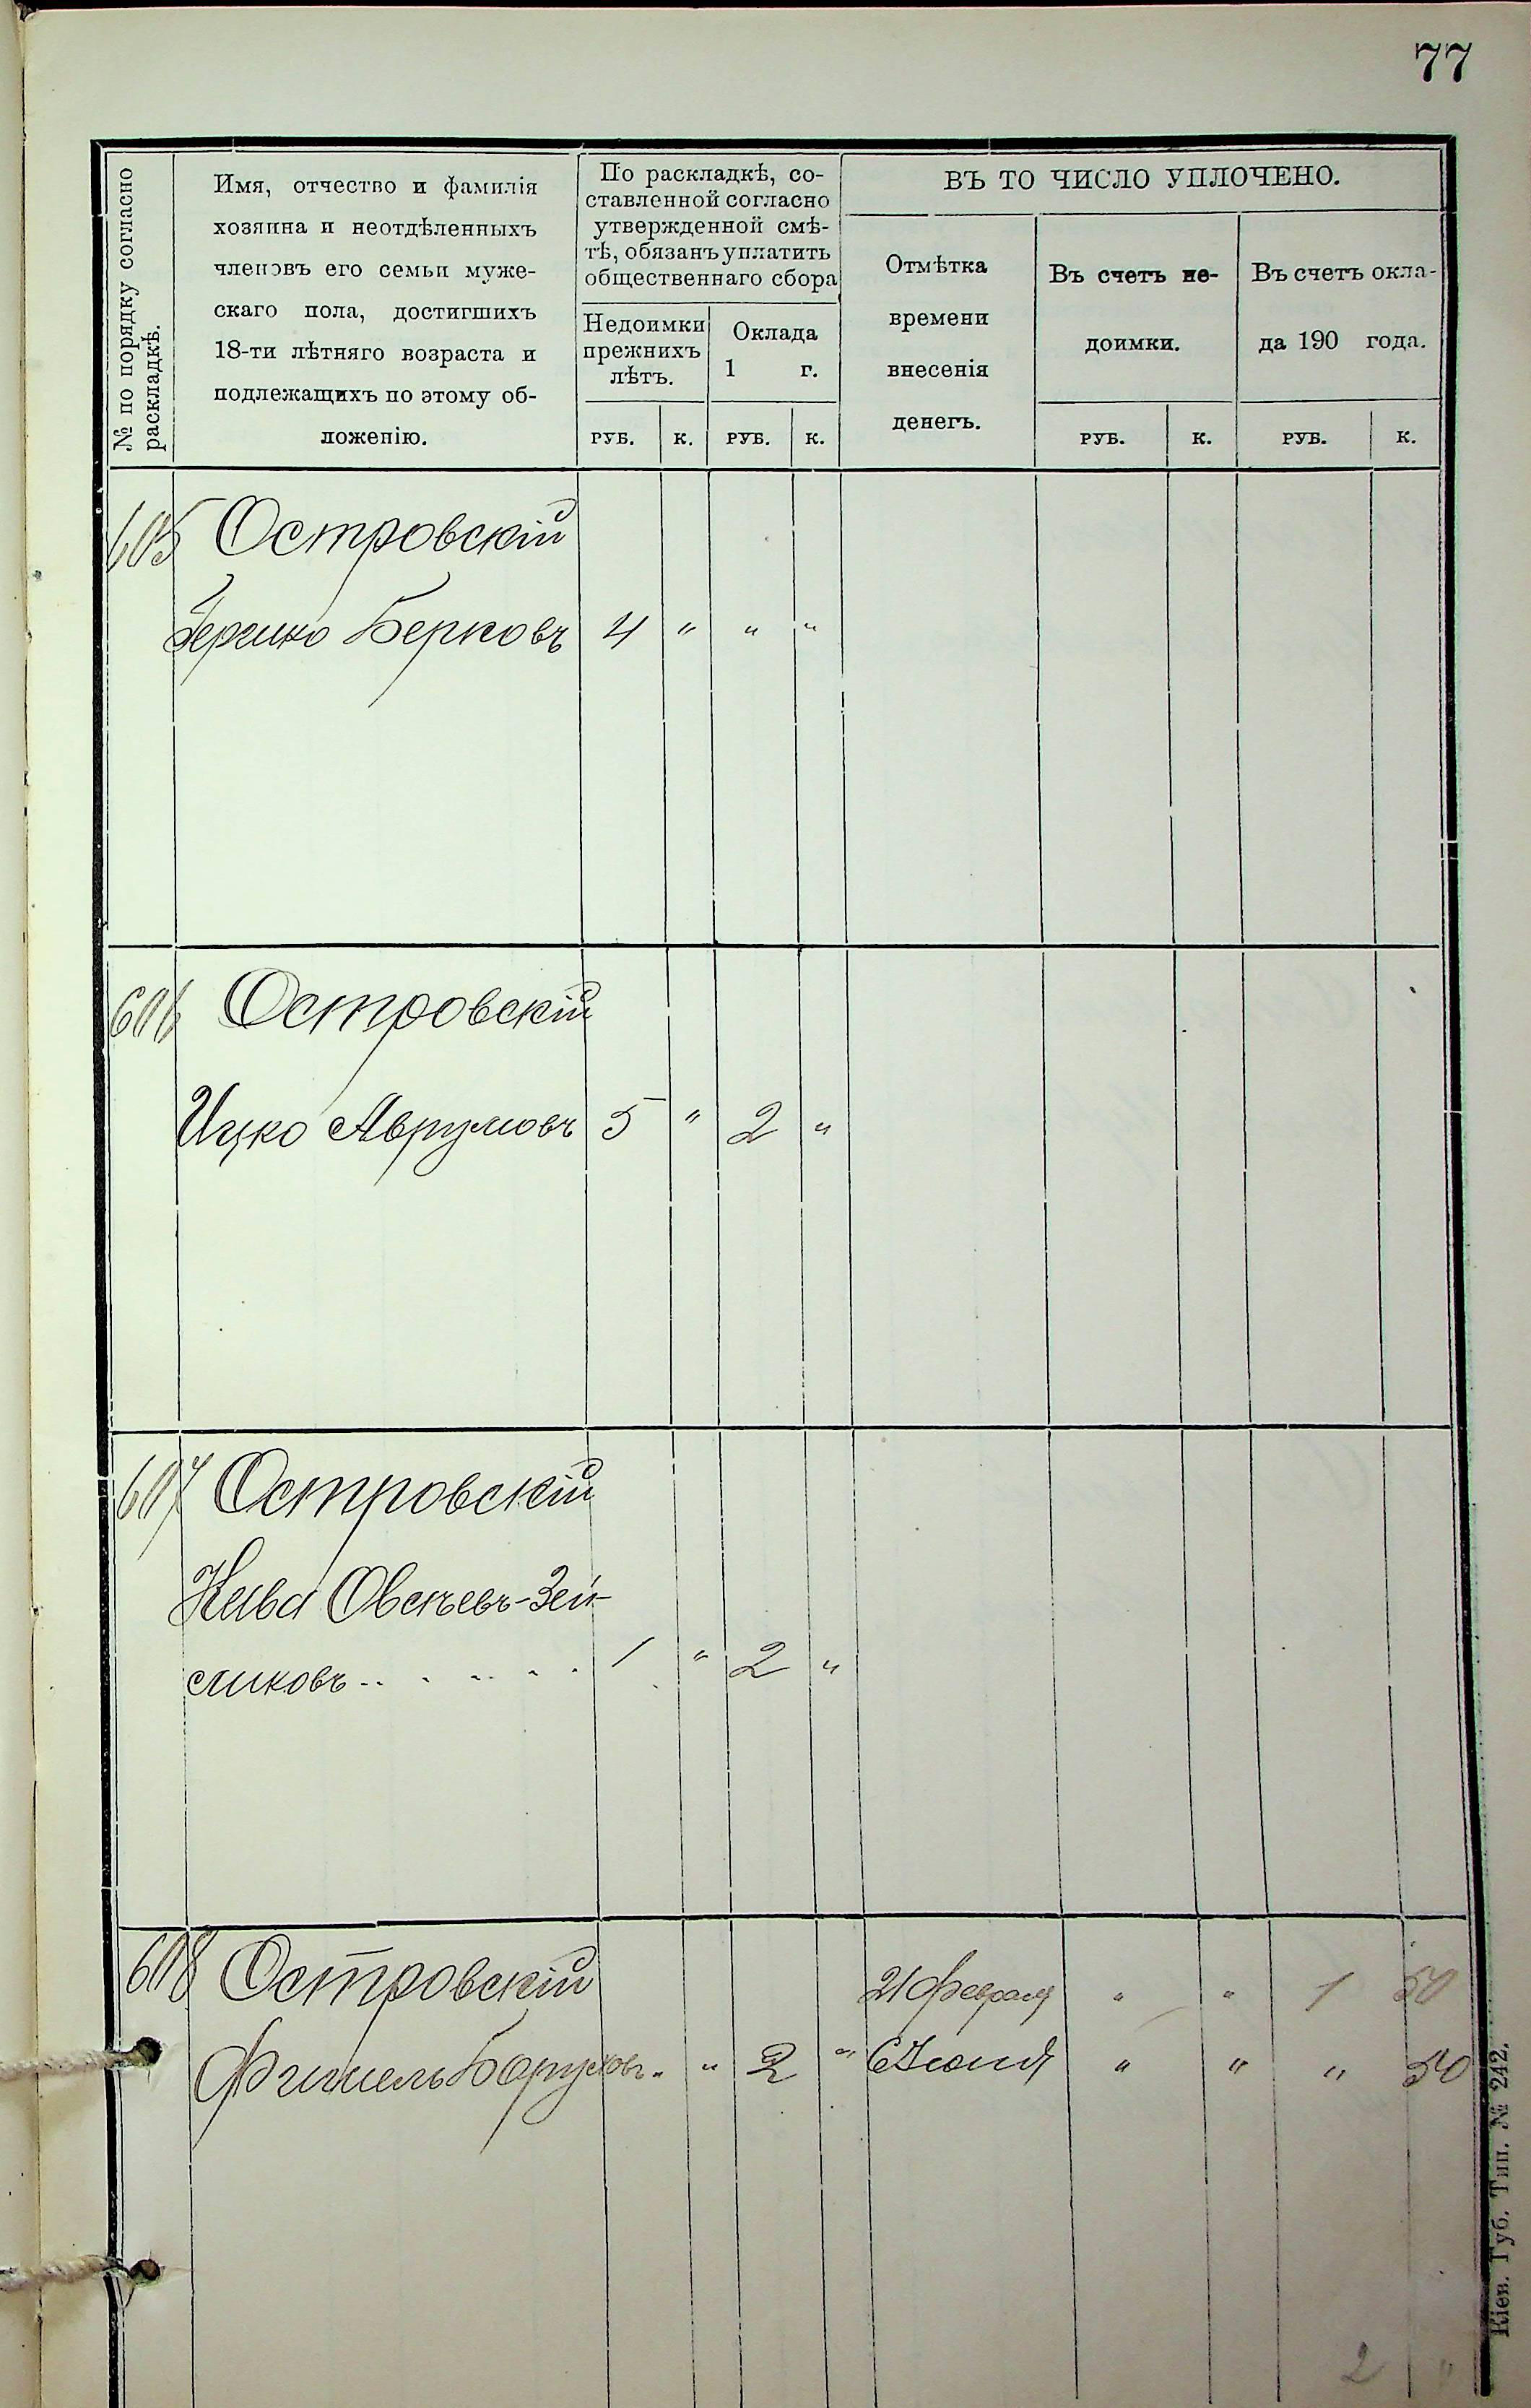 77
№ по порядку согласно
раскладкѣ.
Имя, отчество и фамилія
хозяина и неотдѣленныхъ
членовъ его семьи муже-
скаго пола, достигшихъ
18-ти лѣтняго возраста и
подлежащихъ по этому об-
ложенію.
По раскладкѣ, со-
ставленной согласно
утвержденной смѣ-
тѣ, обязанъ уплатить
общественнаго сбора
Недоимки
прежнихъ
лѣтъ.
Оклада
1 г.
ВЪ ТО ЧИСЛО УПЛОЧЕНО.
Отмѣтка
времени
внесенія
денегъ.
Въ счетъ не-
доимки.
Въ счетъ окла-
да 190 года.
РУБ. К. РУБ. К. РУБ. К. РУБ. К.
605 Островскій
Берковъ 4 " " "
606 Островскій
Ицко Аврумовъ 5 " 2 "
607 Островскій
Кива Овсѣевъ-Зей-
сликовъ 1 " 2 "
608 Островскій 21 Февраля " " 1 50
Фишель Боруховъ " " 2 " 6 Іюня " " " 50
2 "
Кіев. Губ. Тип. № 242.